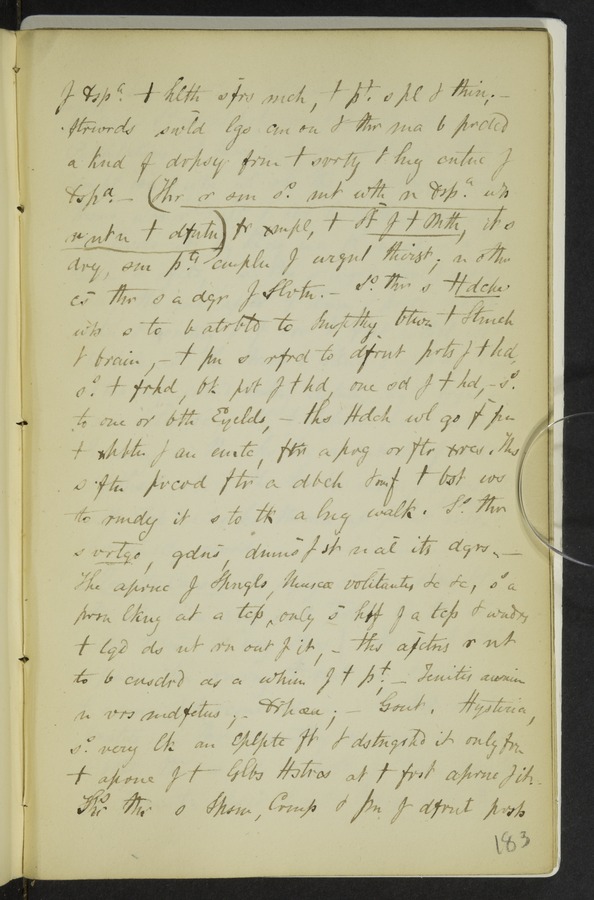 f dsp.ª † hlth sfrs mch, † pt. s pl & thin; -
ftrwrds swld lgs cm on & thr ma b prdcd
a kind f drpsy frm † svrty & lng cntnc f
dspª. - (Thr r sm sº. mt wth n dsp.ª wh
r nt n † dfntn) fr xmpl, † St f † Mth, it s
dry, sm pts cmpln f urgnt thirst; n othr
cs thr s a dgr f Slvtn. - Sº. thr s Hdche
wh s to b atrbtd to Smpthy btwn † Stmch
& brain, - † pn s rfrd to dfrnt prts f † hd,
sº. † frhd, bk prt f † hd, one sd f † hd, - sº.
to one or bth Eyelds, - ths Hdch wl go f fm
† xhbtn f an emtc, ftr a prg or ftr xrcs. Ths
s ftn prcvd ftr a dbch & mf † bst ws
to rmdy it s to tk a lng walk. Sº. thr
s vrtgo, gdns, dmns f st n al its dgrs. -
The aprnc f Spngls, Muscæ volitantes &c &c, sº a
prsn lkng at a tcp, only s hlf f a tcp & wndrs
† lqd ds nt rn out f it, - ths afctns r nt
to b cnsdrd as a whim f † pt. - Tenitis aurium
n vrs mdfctns; - Dspnæa; - Gout. Hysteria,
sº. very lk an Eplptc ft & dstngshd it only frm
† aprnc f † Glbs Hstrcs at † frst aprnc f it -
Sº. thr s Spsm, Crmp & pn f dfrnt prts
183